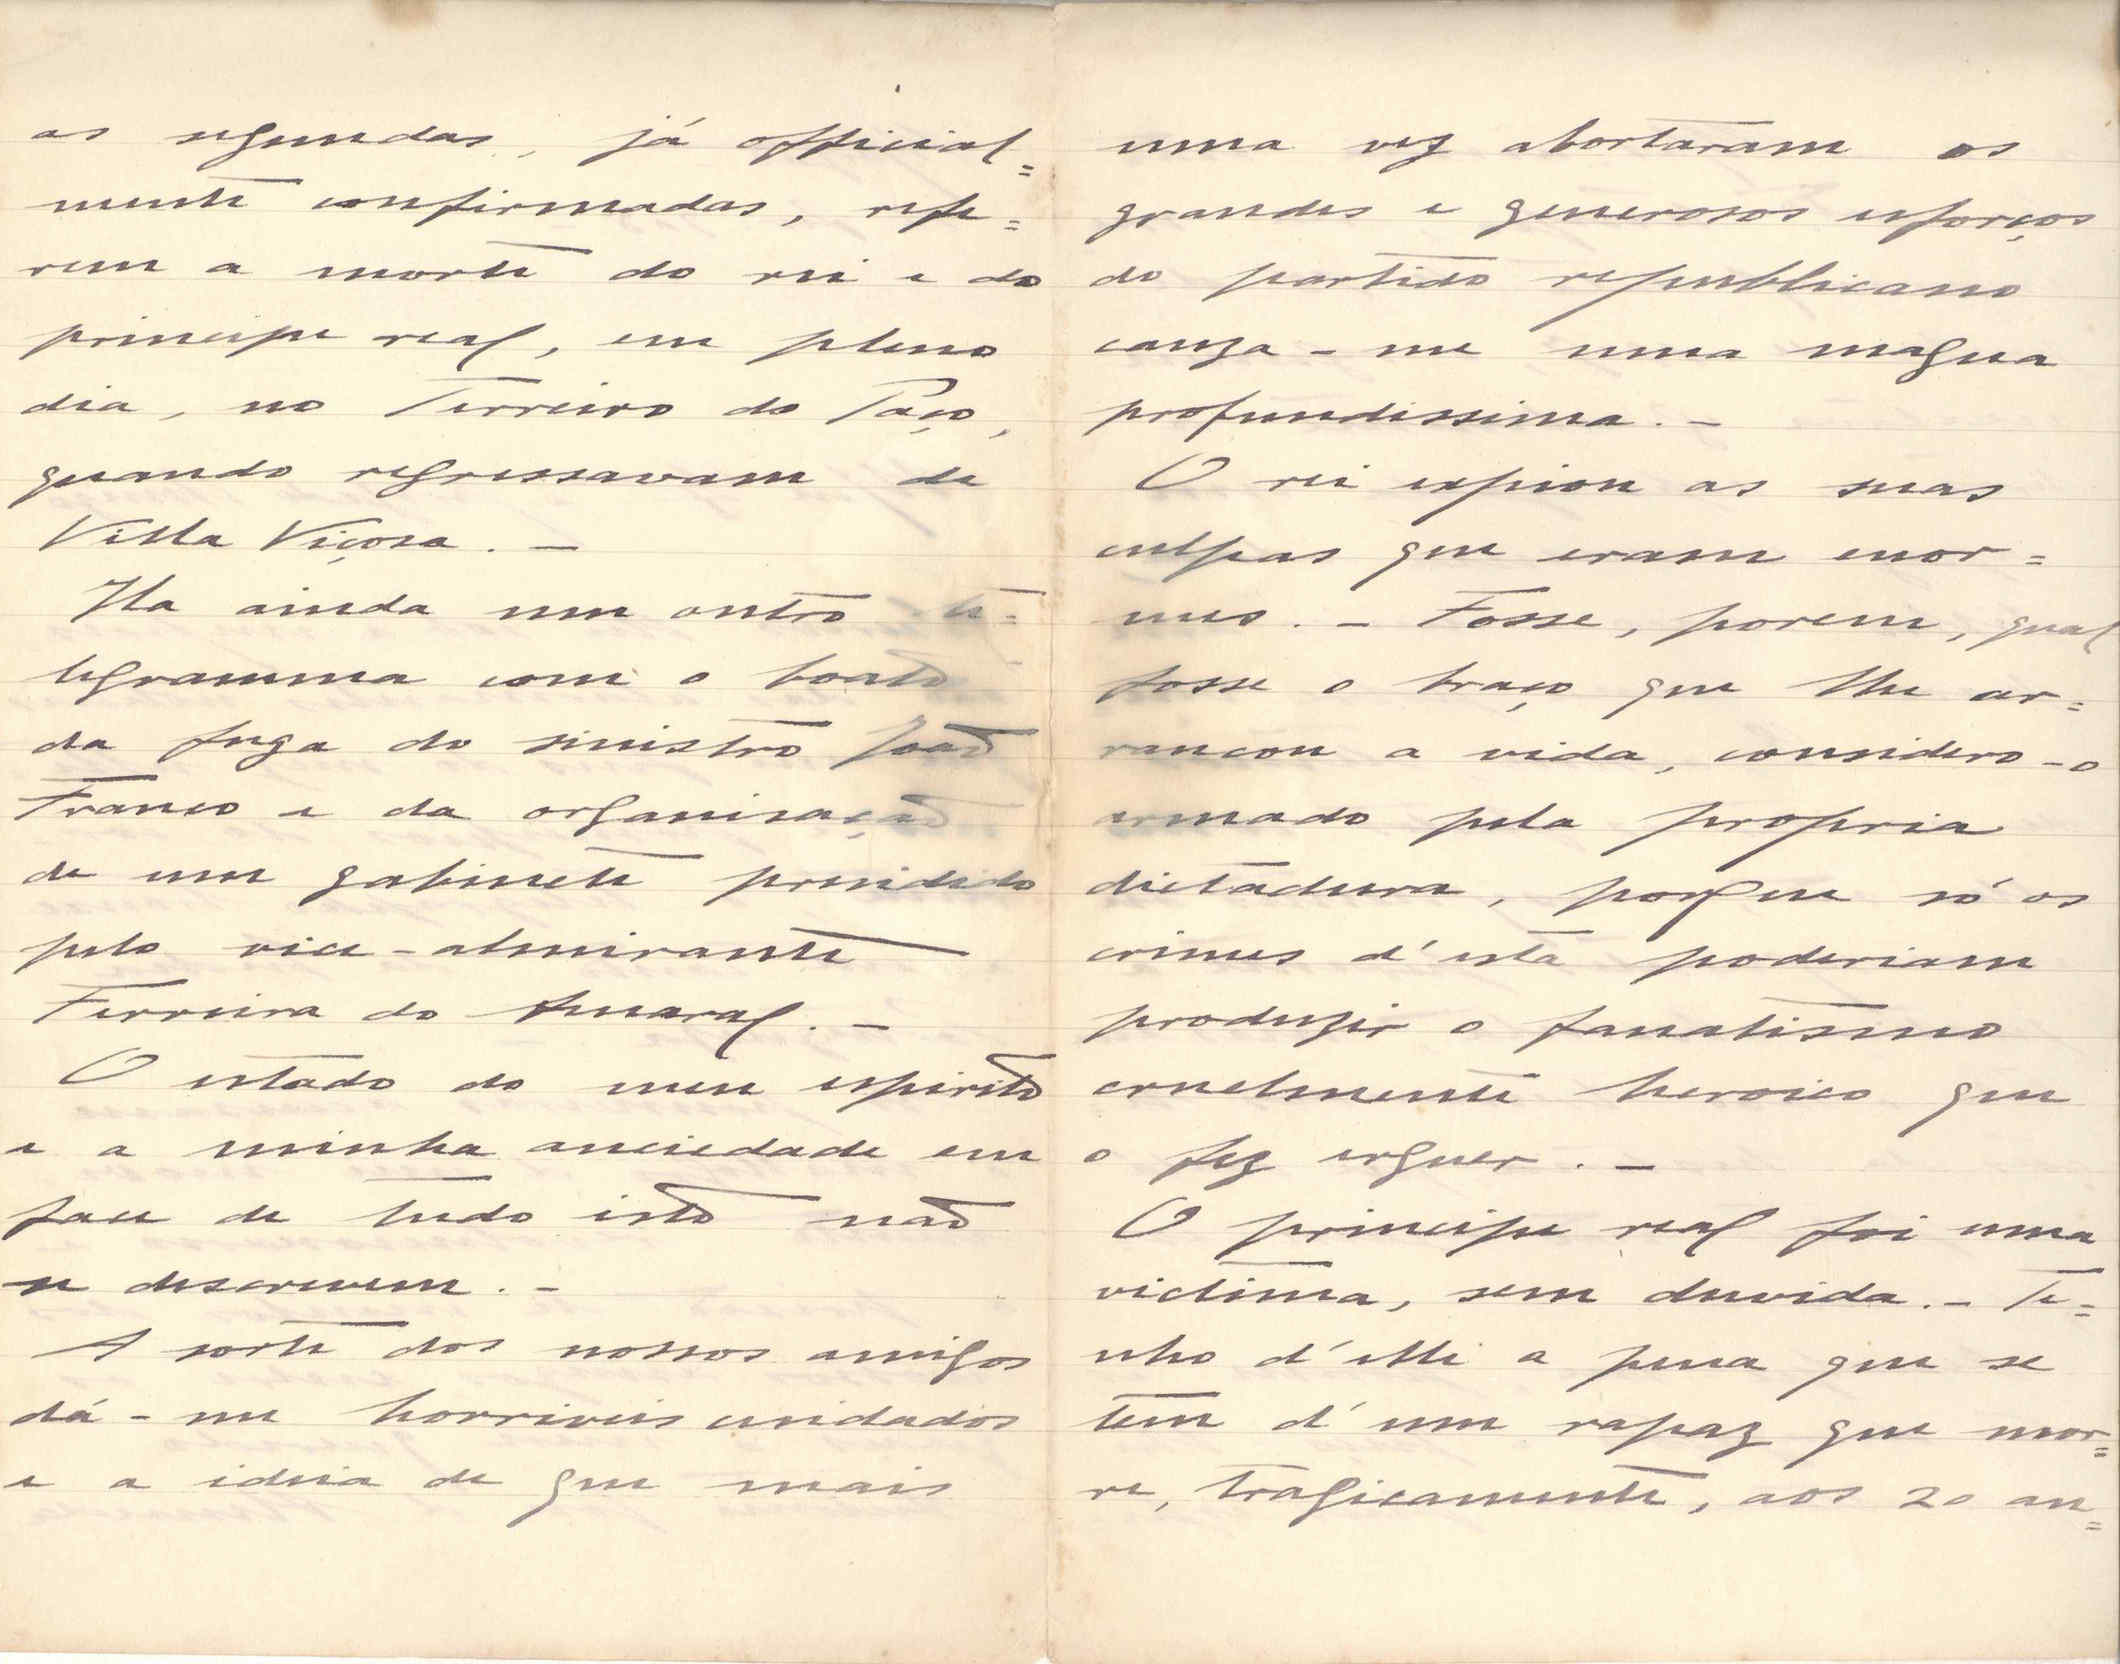 as segundas, já official=
mente confirmadas, refe=
rem a morte do rei e do
principe real, em pleno
dia, no Terreiro do Paço,
quando regressavam de
Villa Viçosa. –
Ha ainda um outro te=
legramma com o boato
da fuga do sinistro João
Franco e da organisação
de um gabinete presidido
pelo vice-almirante
Ferreira do Amaral. –
O estado do meu espirito
e a minha anciedade em
face de tudo isto não
se descrevem. –
A sorte dos nossos amigos
dá-me horriveis cuidados
e a ideia de que mais
uma vez abortaram os
grandes e generosos esforços
do partido republicano
cauza-me uma magua
profundissima. –
O rei expiou as suas
culpas que eram enor=
mes. – Fosse, porem, qual
fosse o braço que lhe ar=
rancou a vida, considero-o
armado pela propria
dictadura, porque só os
crimes d'esta poderiam
produzir o fanatismo
cruelmente heroico que
o fez erguer. –
O principe real foi uma
victima, sem duvida. – Te=
nho d'elle a pena que se
tem d'um rapaz que mor=
re, tragicamente, aos 20 an=